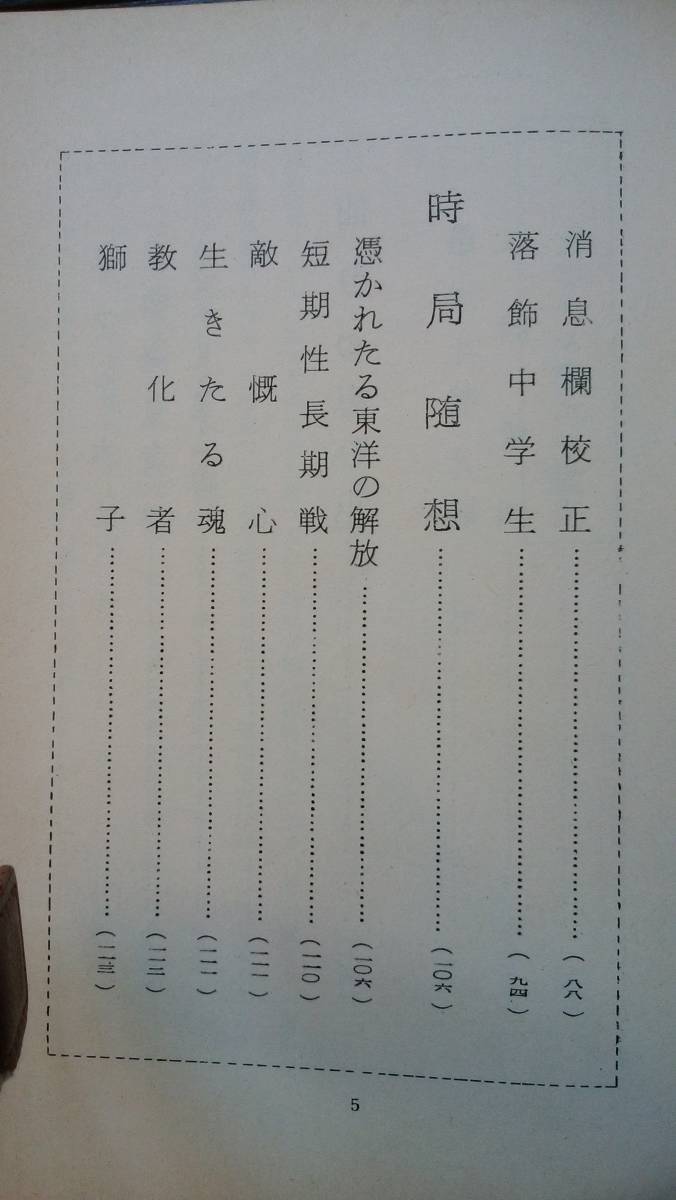 消息欄校正……………………(八八)
落飾中学生……………………(九四)
時局随想……………………(一〇六)
憑かれたる東洋の解放……………………(一〇六)
短期性長期戦……………………(一一〇)
敵慨心……………………(一一一)
生きたる魂……………………(一一一)
教化者……………………(一一二)
獅子……………………(一一三)
5